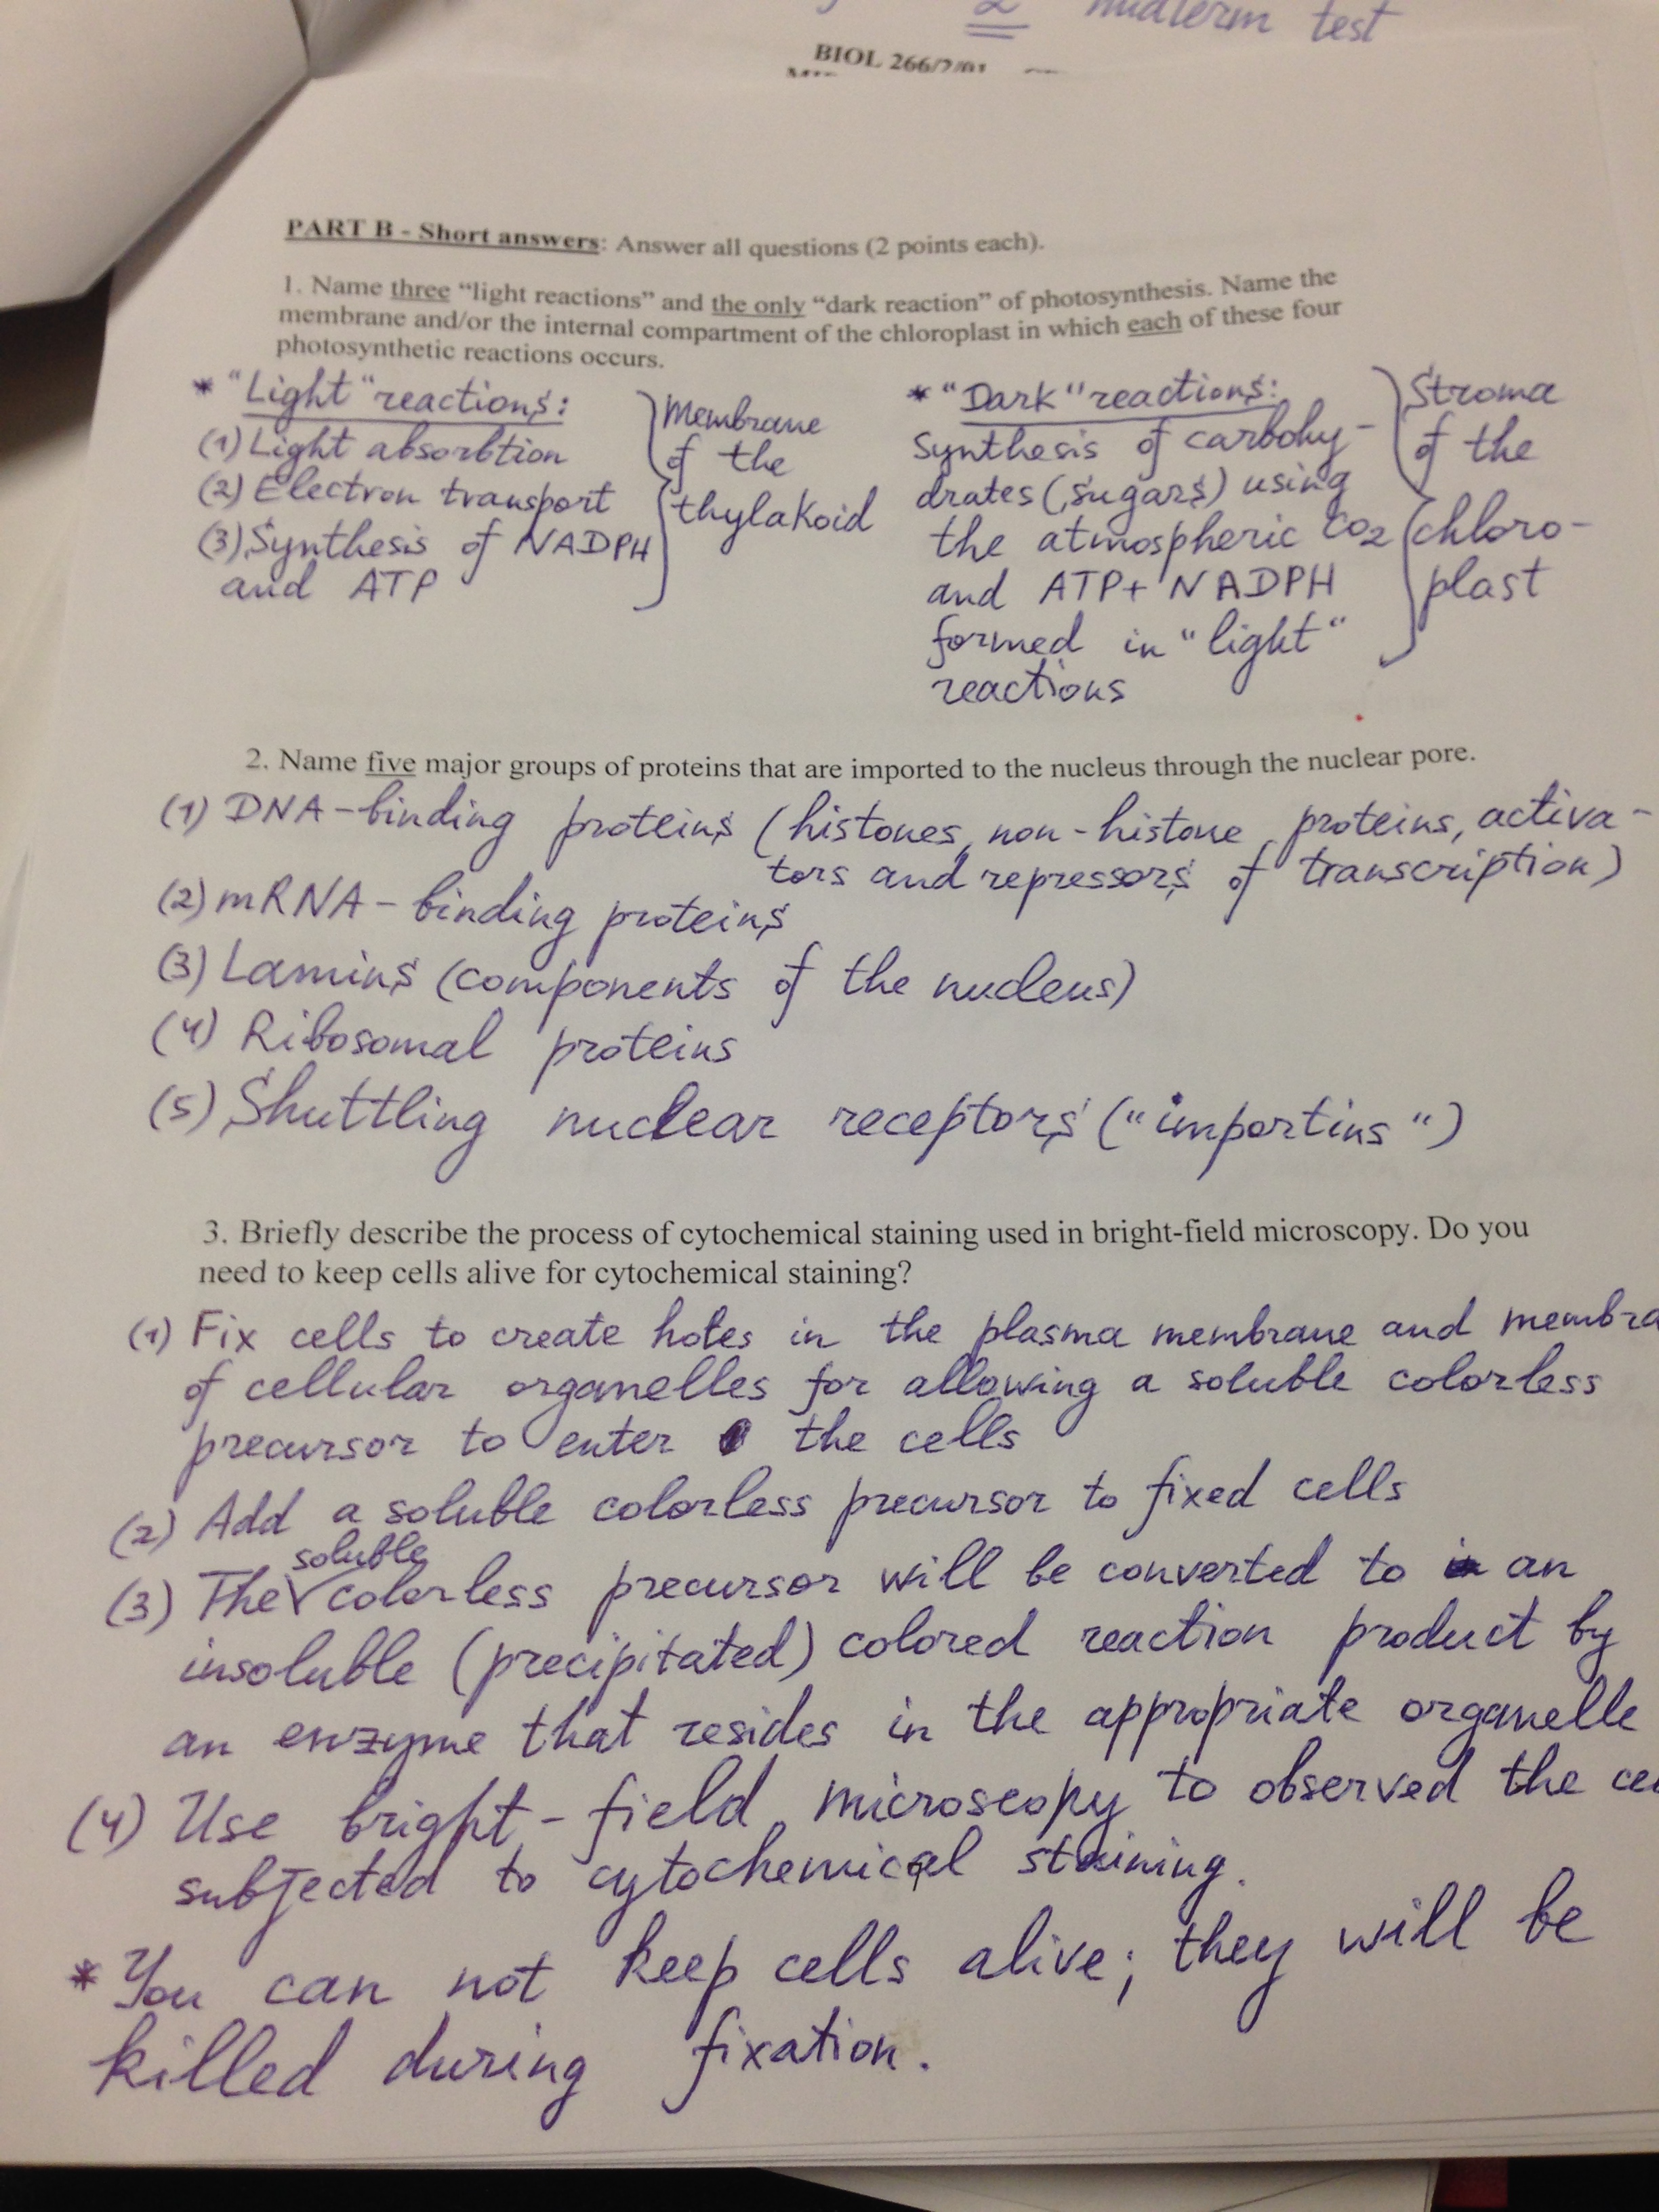 midterm test
BIOL 266/2/01
PART B - Short answers: Answer all questions (2 points each).
1. Name three “light reactions” and the only “dark reaction” of photosynthesis. Name the
membrane and/or the internal compartment of the chloroplast in which each of these four
photosynthetic reactions occurs.
* "Light" reactions:
(1) Light absorbtion
(2) Electron transport
(3) Synthesis of NADPH
and ATP
Membrane
of the
thylakoid
* "Dark" reactions:
Synthesis of carbohy-
drates (sugars) using
the atmospheric CO2
and ATP+NADPH
formed in "light"
reactions
Stroma
of the
chloro-
plast
2. Name five major groups of proteins that are imported to the nucleus through the nuclear pore.
(1) DNA-binding proteins (histones, non-histone proteins, activa-
tors and repressors of transcription)
(2) mRNA-binding proteins
(3) Lamins (components of the nucleus)
(4) Ribosomal proteins
(5) Shuttling nuclear receptors ("importins")
3. Briefly describe the process of cytochemical staining used in bright-field microscopy. Do you
need to keep cells alive for cytochemical staining?
(1) Fix cells to create holes in the plasma membrane and membra
of cellular organelles for allowing a soluble colorless
precursor to enter the cells
(2) Add a soluble colorless precursor to fixed cells
(3) The soluble colorless precursor will be converted to an
insoluble (precipitated) colored reaction product by
an enzyme that resides in the appropriate organelle
(4) Use bright-field microscopy to observed the ce
subjected to cytochemical staining.
* You can not keep cells alive; they will be
killed during fixation.